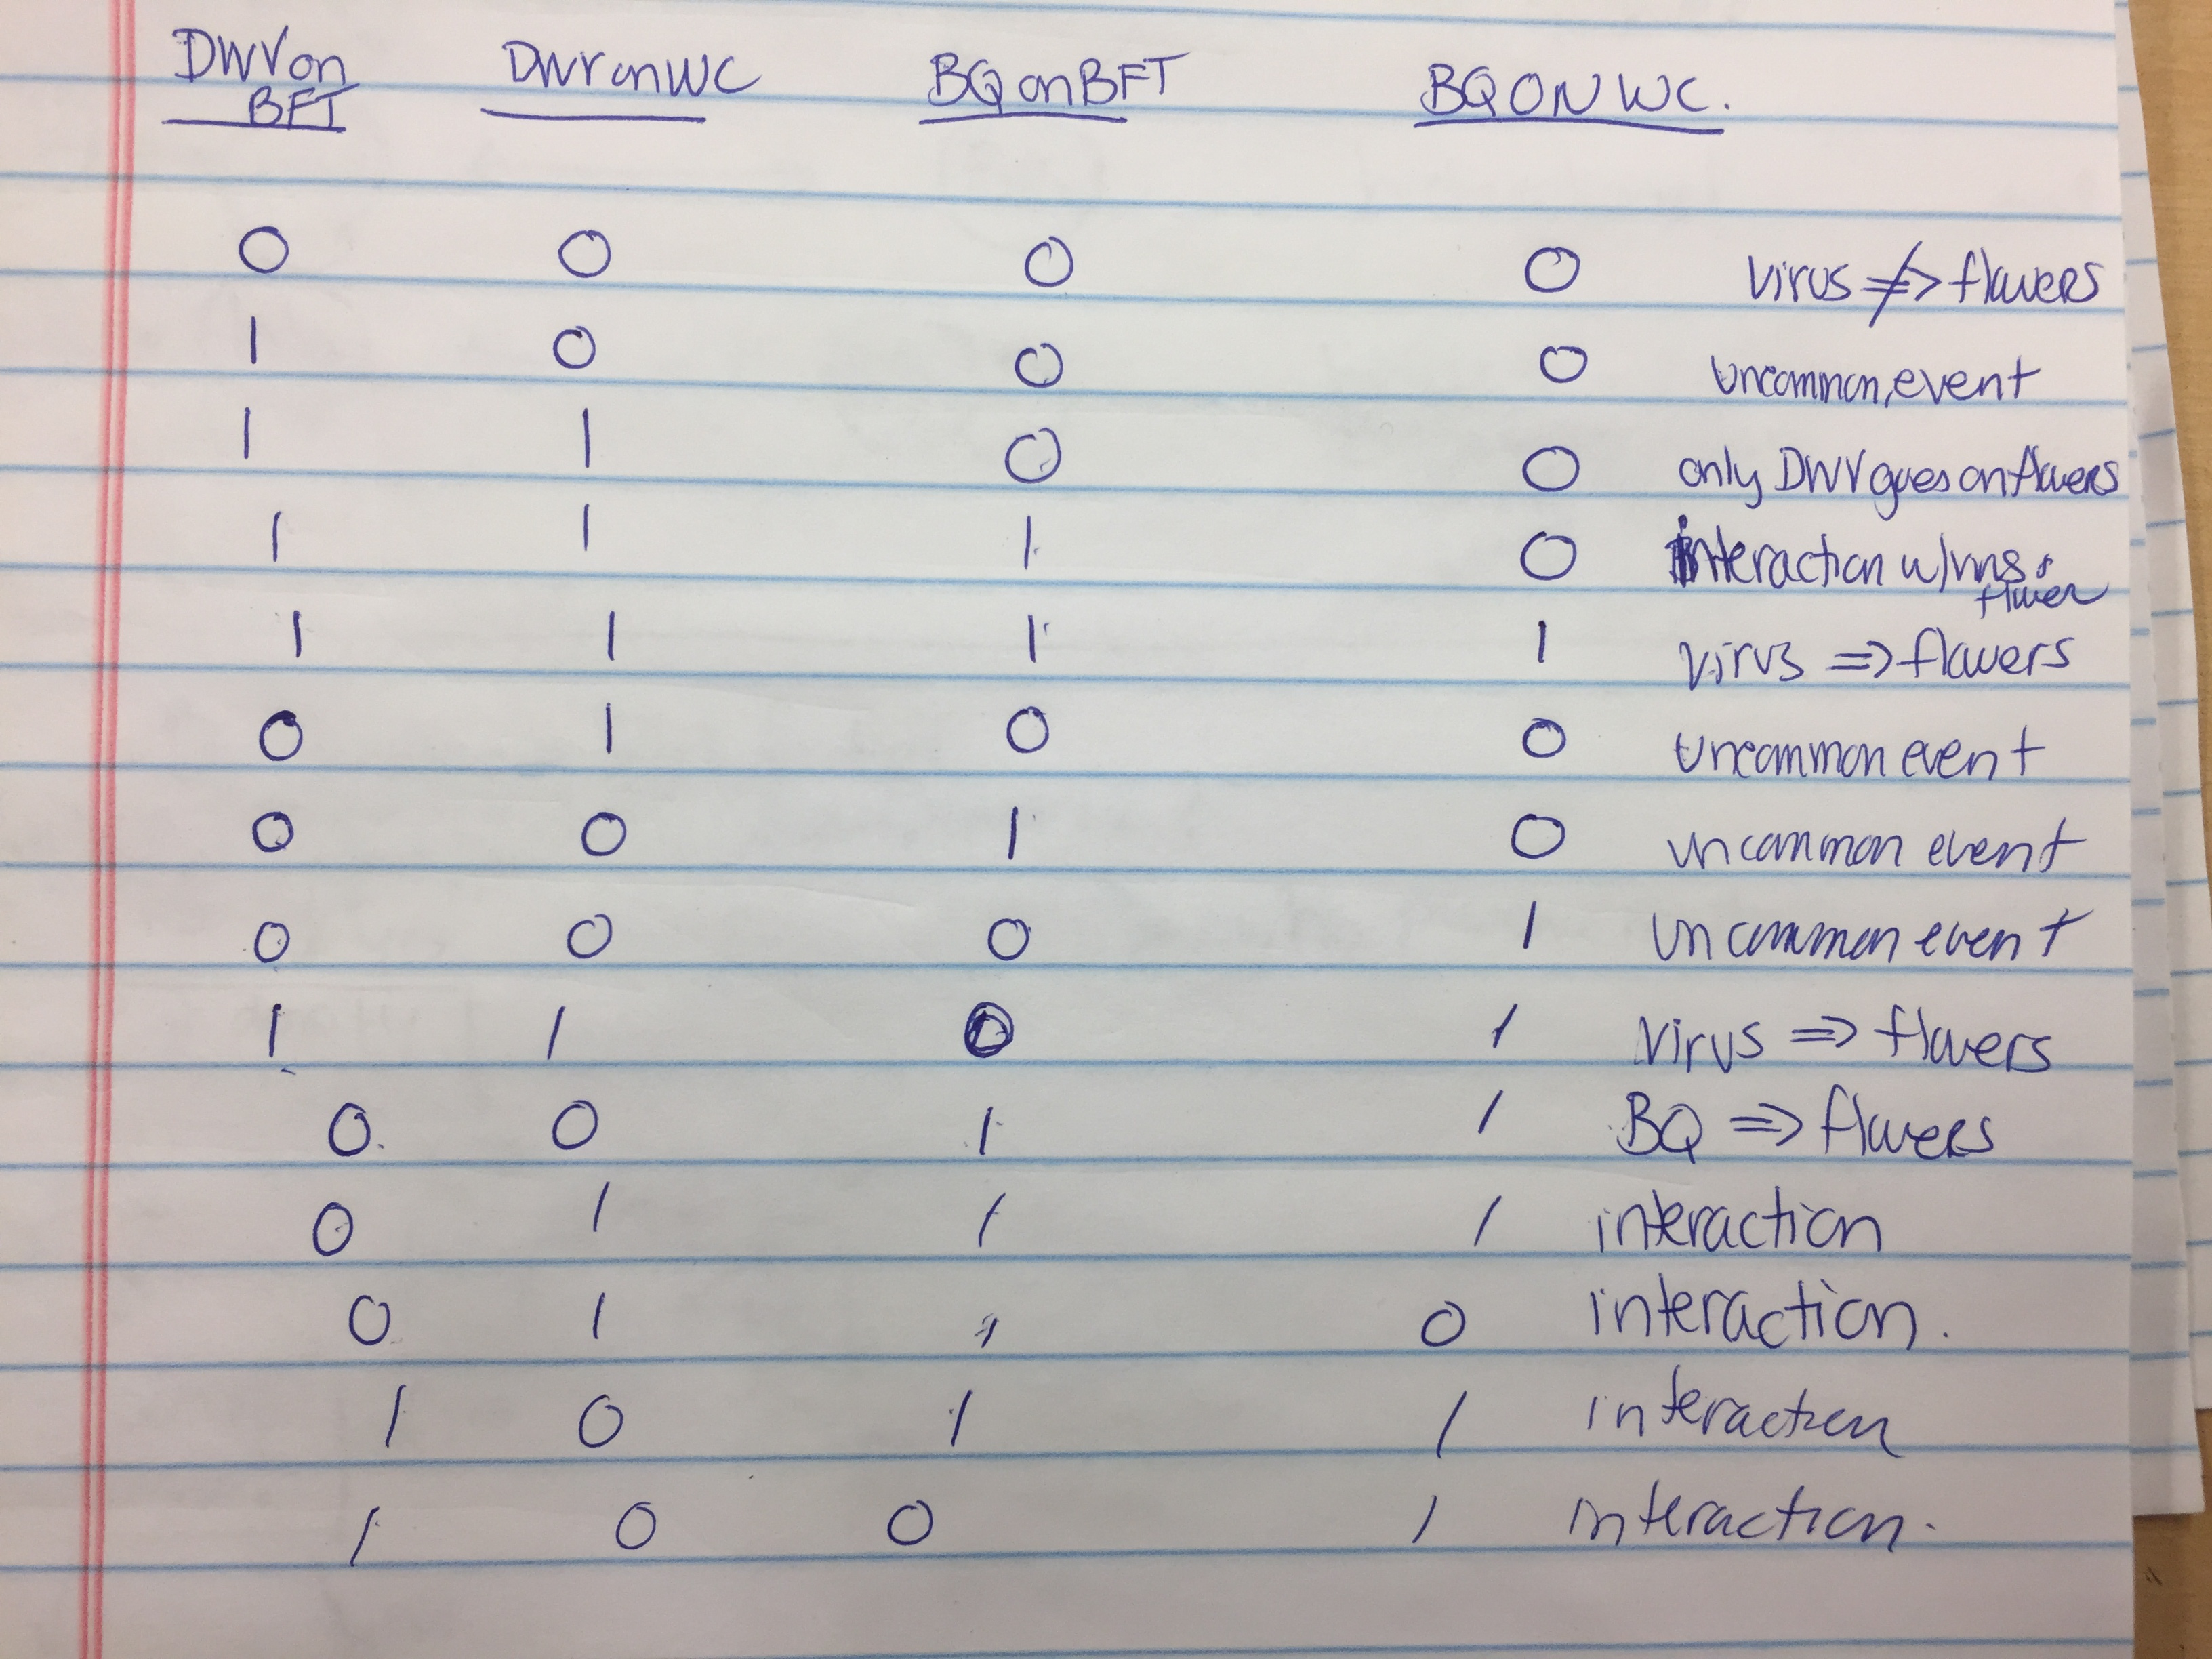 DWV on DWV on WC BQ on BFT BQ ON WC.
BFT
0 0 0 0 virus ≠> flowers
1 0 0 0 uncommon event
1 1 0 0 only DWV goes on flowers
1 1 1 0 interaction w/
flower
1 1 1 1 virus => flowers
0 1 0 0 uncommon event
0 0 1 0 uncommon event
0 0 0 1 uncommon event
1 1 0 1 virus => flowers
0 0 1 1 BQ => flowers
0 1 1 1 interaction
0 1 1 0 interaction.
1 0 1 1 interaction
1 0 0 1 interaction.